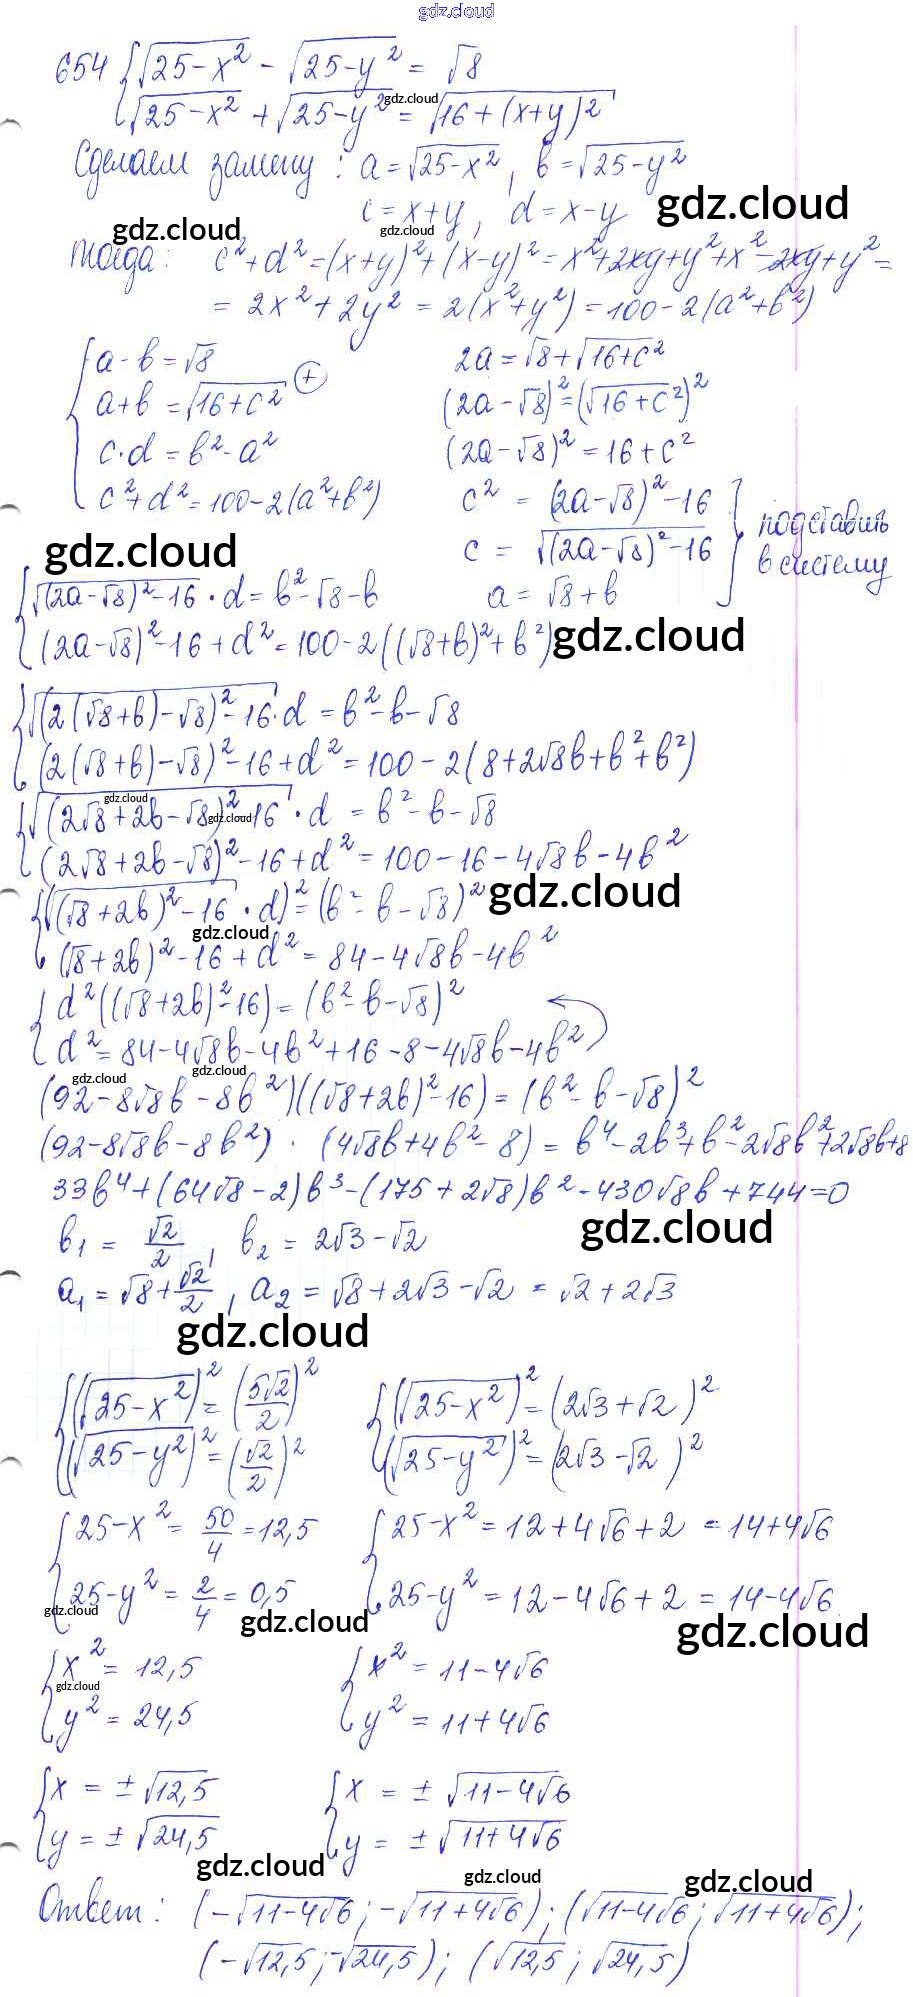 gdz.cloud
654 {√(25-x²) - √(25-y²) = √8
{√(25-x²) + √(25-y²) = √(16+(x+y)²)
gdz.cloud
Сделаем замену: a=√(25-x²), b=√(25-y²)
c=x+y, d=x-y
gdz.cloud
gdz.cloud
gdz.cloud
Тогда: c²+d²=(x+y)²+(x-y)²=x²+2xy+y²+x²-2xy+y²=
= 2x²+2y² = 2(x²+y²)=100-2(a²+b²)
{a-b=√8
a+b=√(16+c²) (+)
c·d=b²-a²
c²+d²=100-2(a²+b²)
2a=√8+√(16+c²)
(2a-√8)²=(√(16+c²))²
(2a-√8)²=16+c²
c² = (2a-√8)²-16
c = √((2a-√8)²-16)
a = √8+b
} подставить
в систему
gdz.cloud
{√((2a-√8)²-16)·d=b²-√8-b
(2a-√8)²-16+d²=100-2((√8+b)²+b²)
gdz.cloud
{√((2(√8+b)-√8)²-16)·d=b²-b-√8
(2(√8+b)-√8)²-16+d²=100-2(8+2√8b+b²+b²)
gdz.cloud
gdz.cloud
{√((2√8+2b-√8)²-16)·d = b²-b-√8
(2√8+2b-√8)²-16+d²=100-16-4√8b-4b²
{(√((√8+2b)²-16)·d)²=(b²-b-√8)²
gdz.cloud
gdz.cloud
(√8+2b)²-16+d²=84-4√8b-4b²
{d²((√8+2b)²-16)=(b²-b-√8)²
d²=84-4√8b-4b²+16-8-4√8b-4b²
gdz.cloud
gdz.cloud
(92-8√8b-8b²)((√8+2b)²-16)=(b²-b-√8)²
(92-8√8b-8b²)·(4√8b+4b²-8)=b⁴-2b³+b²-2√8b²+2√8b+8
33b⁴+(64√8-2)b³-(175+2√8)b²-430√8b+744=0
b₁ = √2/2, b₂ = 2√3-√2
gdz.cloud
a₁=√8+√2/2, a₂=√8+2√3-√2 = √2+2√3
gdz.cloud
{(√(25-x²))²=(5√2/2)²
(√(25-y²))²=(√2/2)²
{(√(25-x²))²=(2√3+√2)²
(√(25-y²))²=(2√3-√2)²
{25-x²=50/4=12,5
25-y²=2/4=0,5
{25-x²=12+4√6+2=14+4√6
25-y²=12-4√6+2=14-4√6
gdz.cloud
gdz.cloud
gdz.cloud
{x²=12,5
y²=24,5
gdz.cloud
{x²=11-4√6
y²=11+4√6
{x=±√12,5
y=±√24,5
{x=±√(11-4√6)
y=±√(11+4√6)
gdz.cloud
gdz.cloud
gdz.cloud
Ответ: (-√(11-4√6);-√(11+4√6));(√(11-4√6);√(11+4√6));
(-√12,5;-√24,5);(√12,5;√24,5)